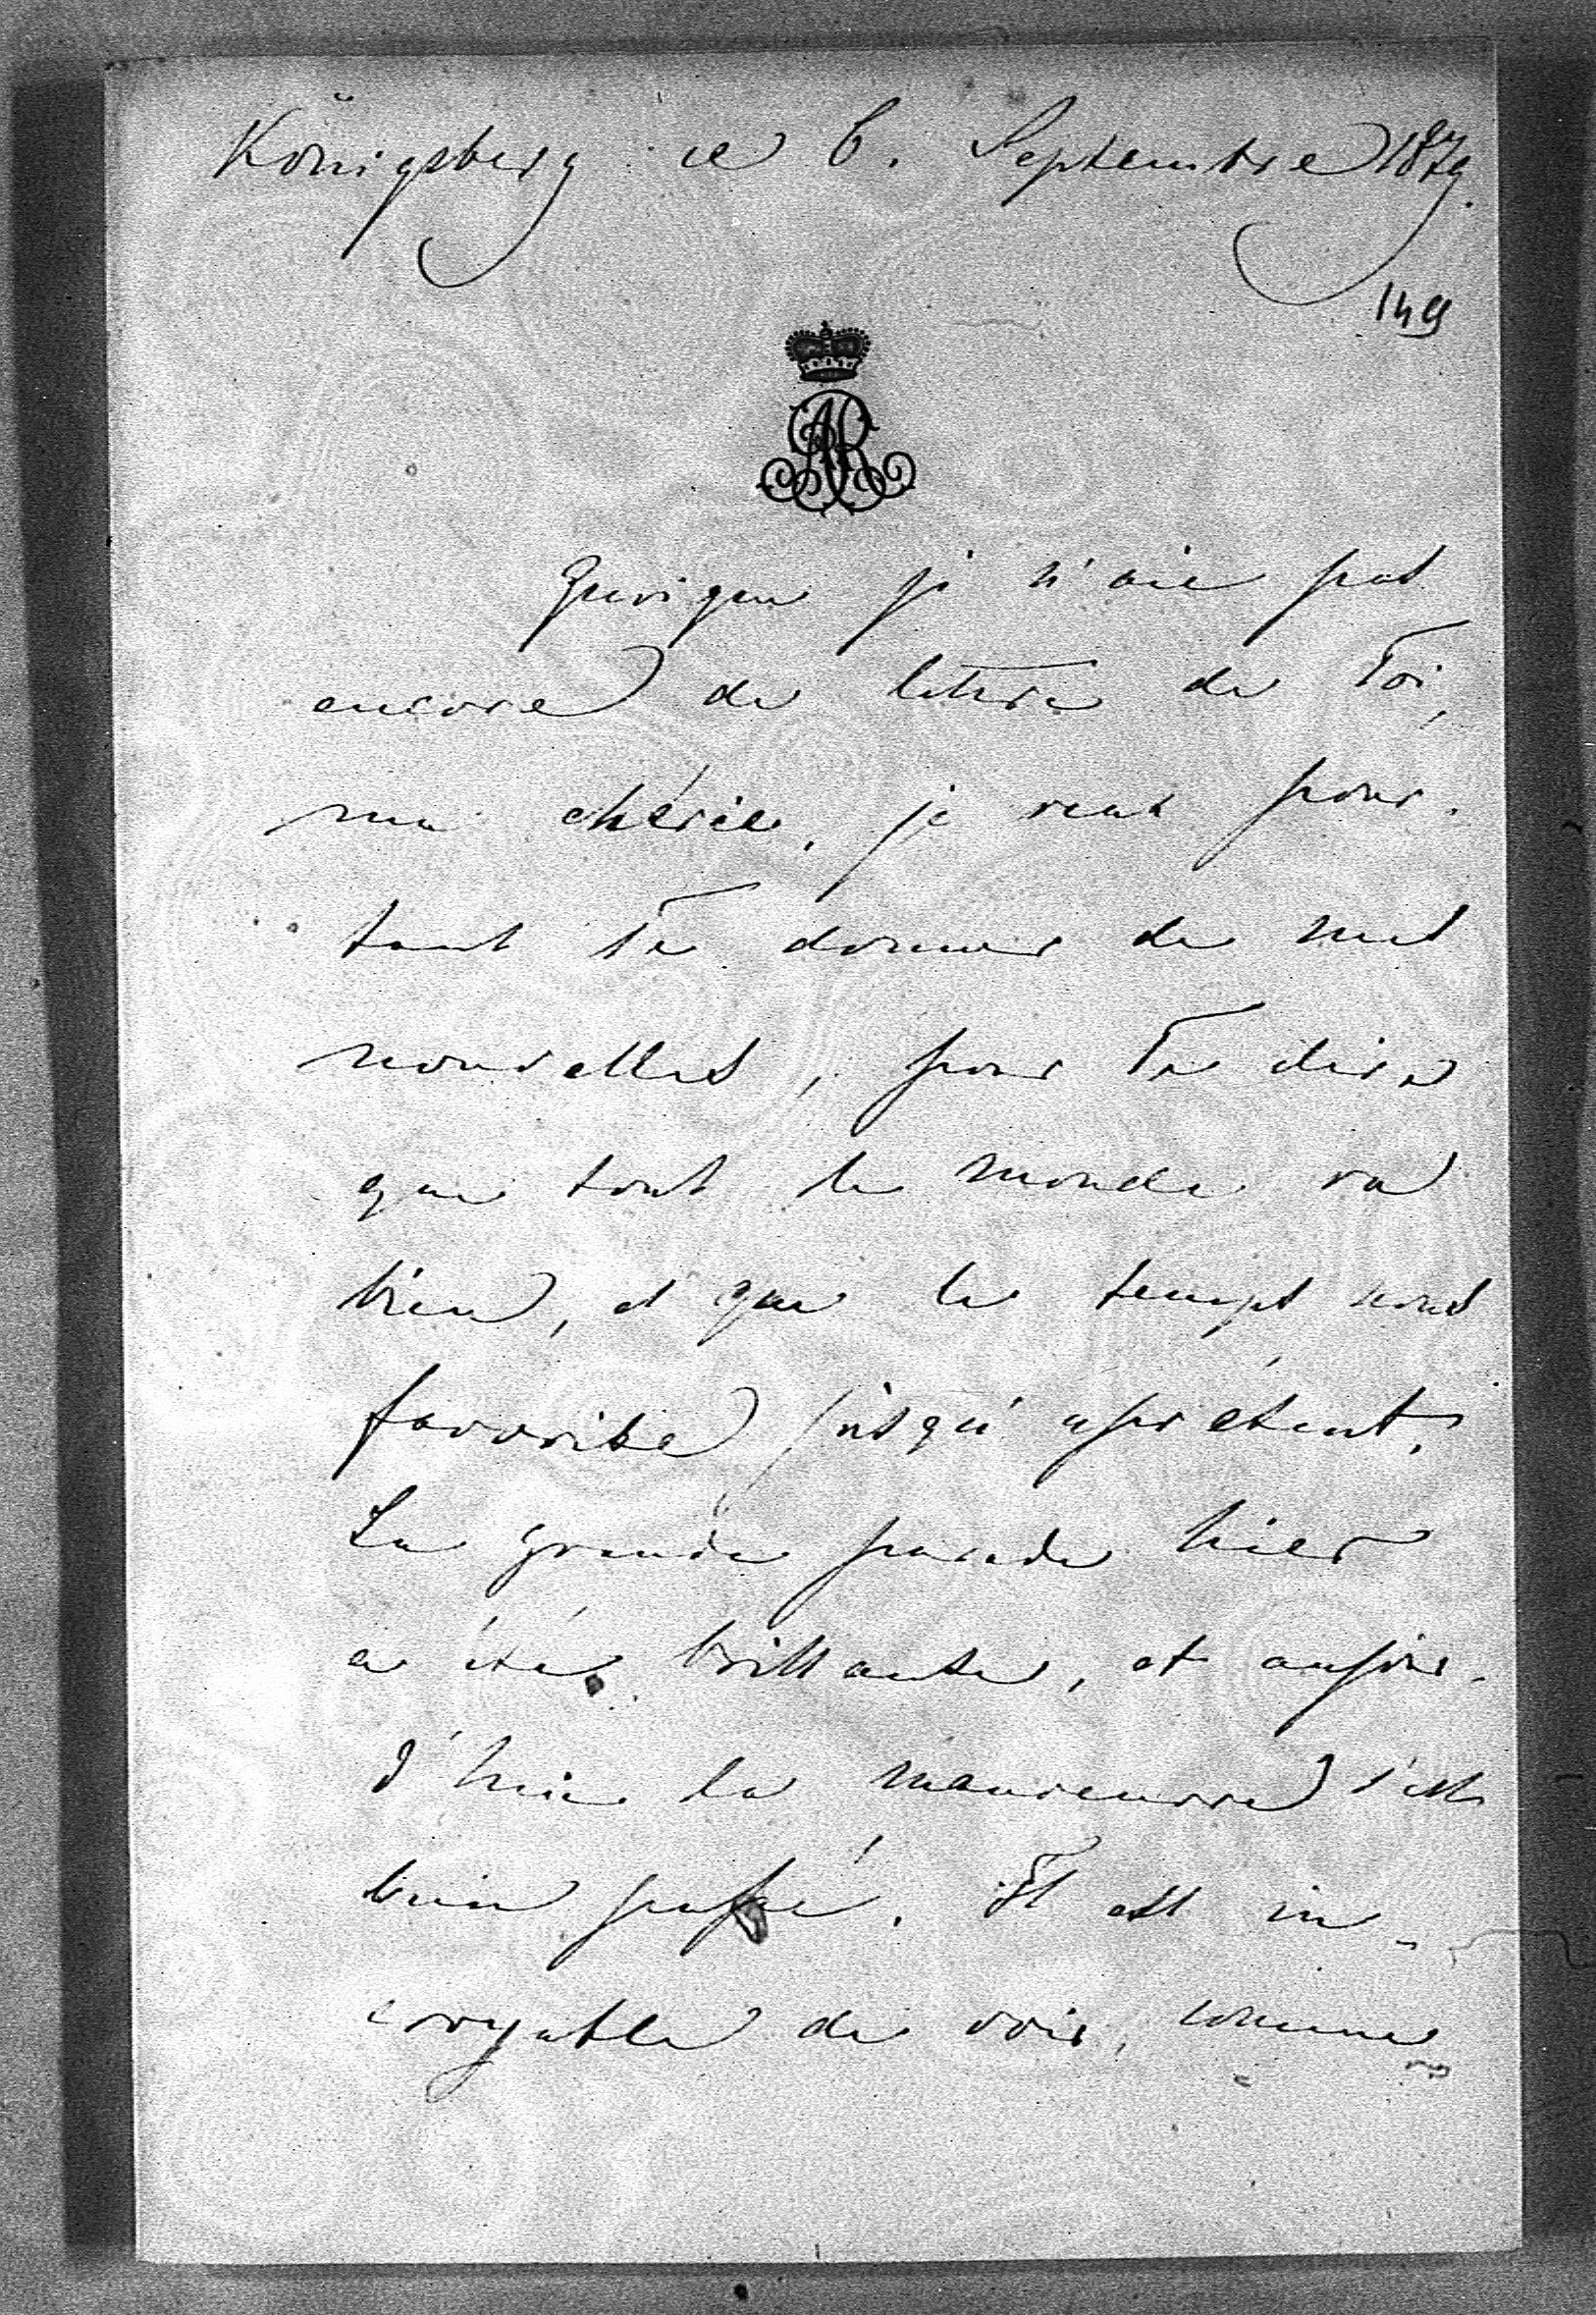 Königsberg ce 6. Septembre 1879.
149
AR
Quoique je n'aie pas
encore de lettre de Toi,
ma chérie, je veux pour-
tant Te donner de mes
nouvelles, pour Te dire
que tout le monde va
bien, et que le temps nous
favorise jusqu'àprésent.
La grande parade hier
a été brillante, et aujour-
d'hui la manoeuvre s'est
bien passé. Il est in-
croyable de voir, comme